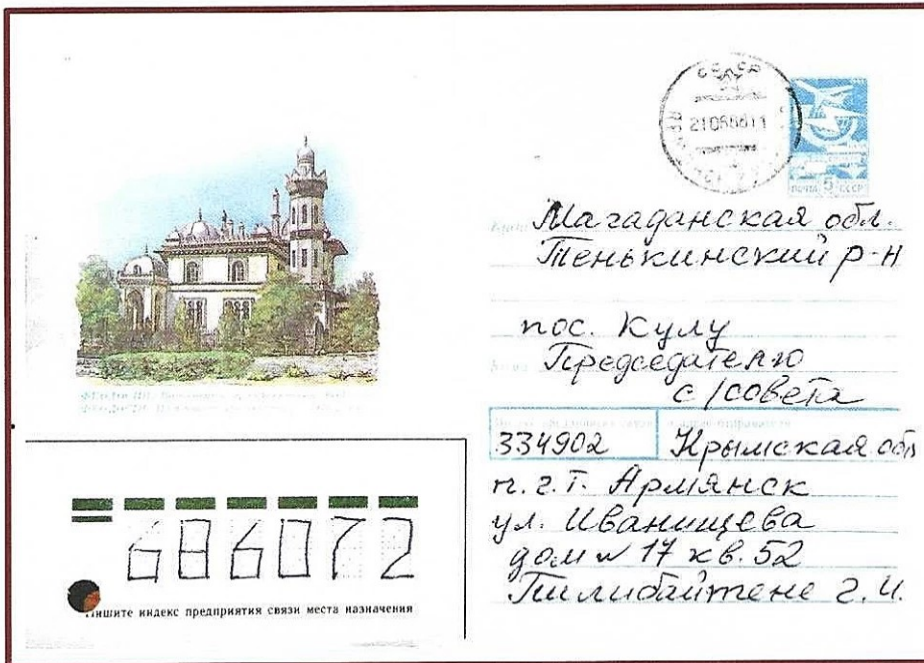 СССР
21 06 88 11
ПОЧТА 5 СССР
Магаданская обл.
Тенькинский р-н
пос. Кулу
Председателю
с/совета
334902 Крымская обл
п.г.т. Армянск
ул. Иванищева
дом № 17 кв. 52
Тилибайтене Г.И.
686072
Пишите индекс предприятия связи места назначения